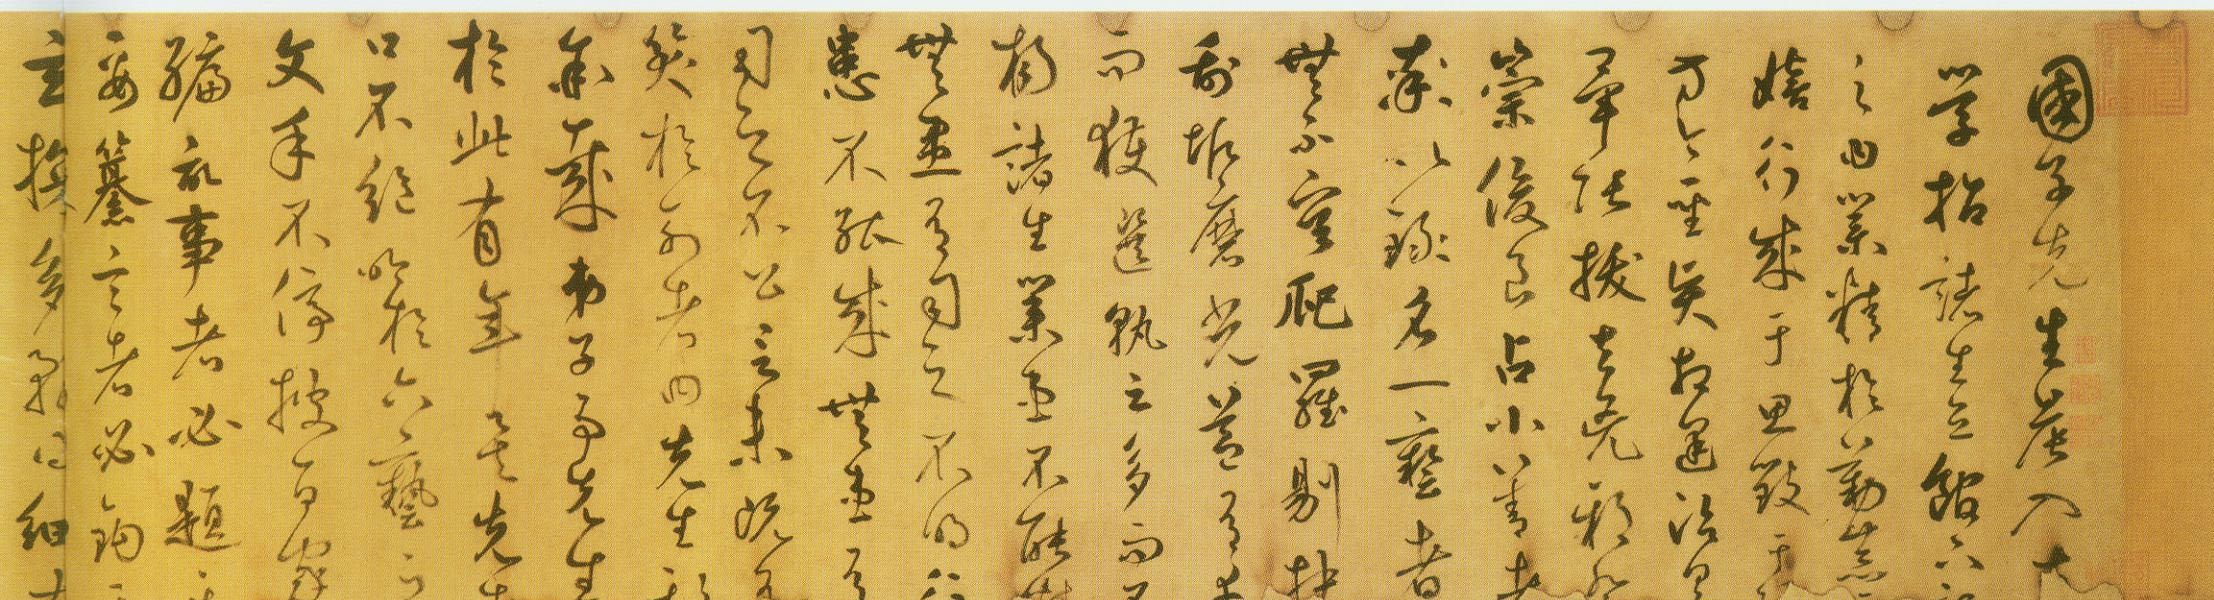 國子先生晨入太
學招諸生立館下
之曰業精於勤荒
嬉行成于思毀于
方今聖賢相逢治具
畢張拔去兇邪登
崇俊良占小善者
率以錄名一藝者
無不容爬羅剔抉
刮垢磨光蓋有幸
而獲選孰云多而不
揚諸生業患不能精
無患有司之不明行
患不能成無患有
司之不公言未既有
笑於列者曰先生欺
余哉弟子事先生
於此有年矣先生
口不絕吟於六藝之
文手不停披百家
編記事者必題其
要纂言者必鉤其
玄探多務得細大